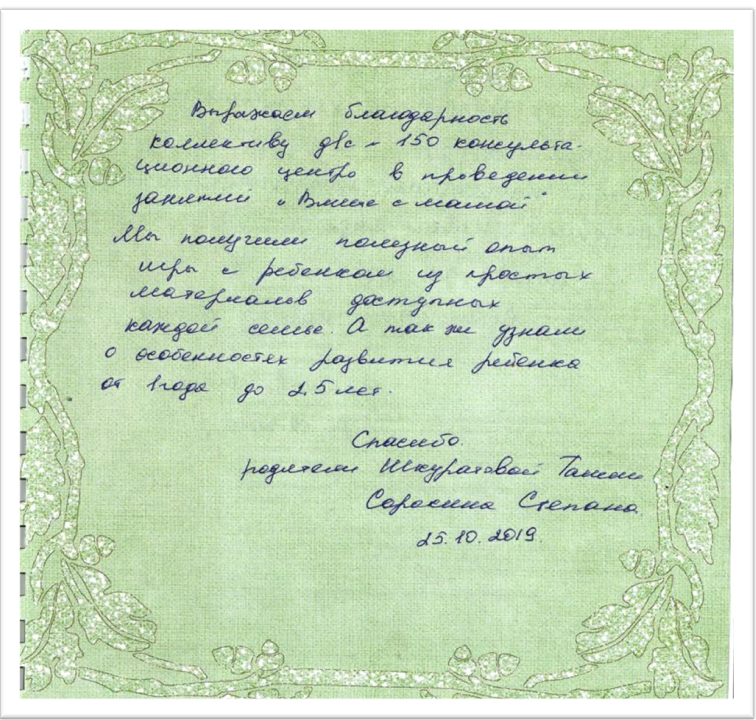 Выражаем благодарность
коллективу д/с № 150 консульта-
ционного центра в проведении
занятий „Вместе с мамой"
Мы получили полезный опыт
игры с ребенком из простых
материалов доступных
каждой семье. А так же узнали
о особенностях развития ребенка
от 1 года до 2,5 лет.
Спасибо.
родители Шкуратовой Таисии
Сорокина Степана
25.10.2019.